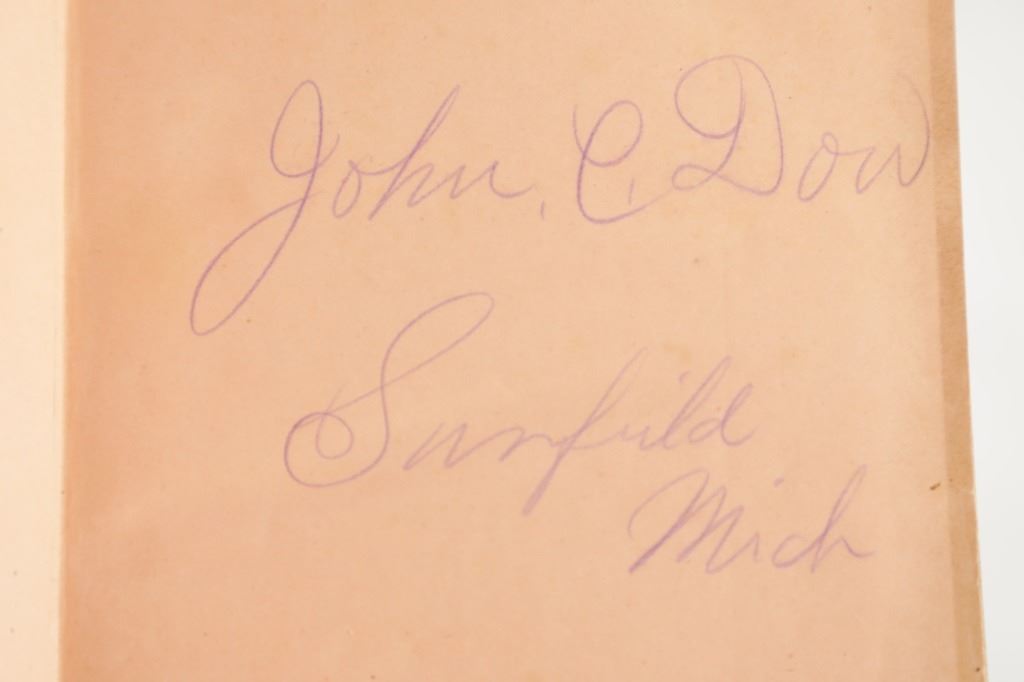 John. C. Dow
Sunfield
Mich